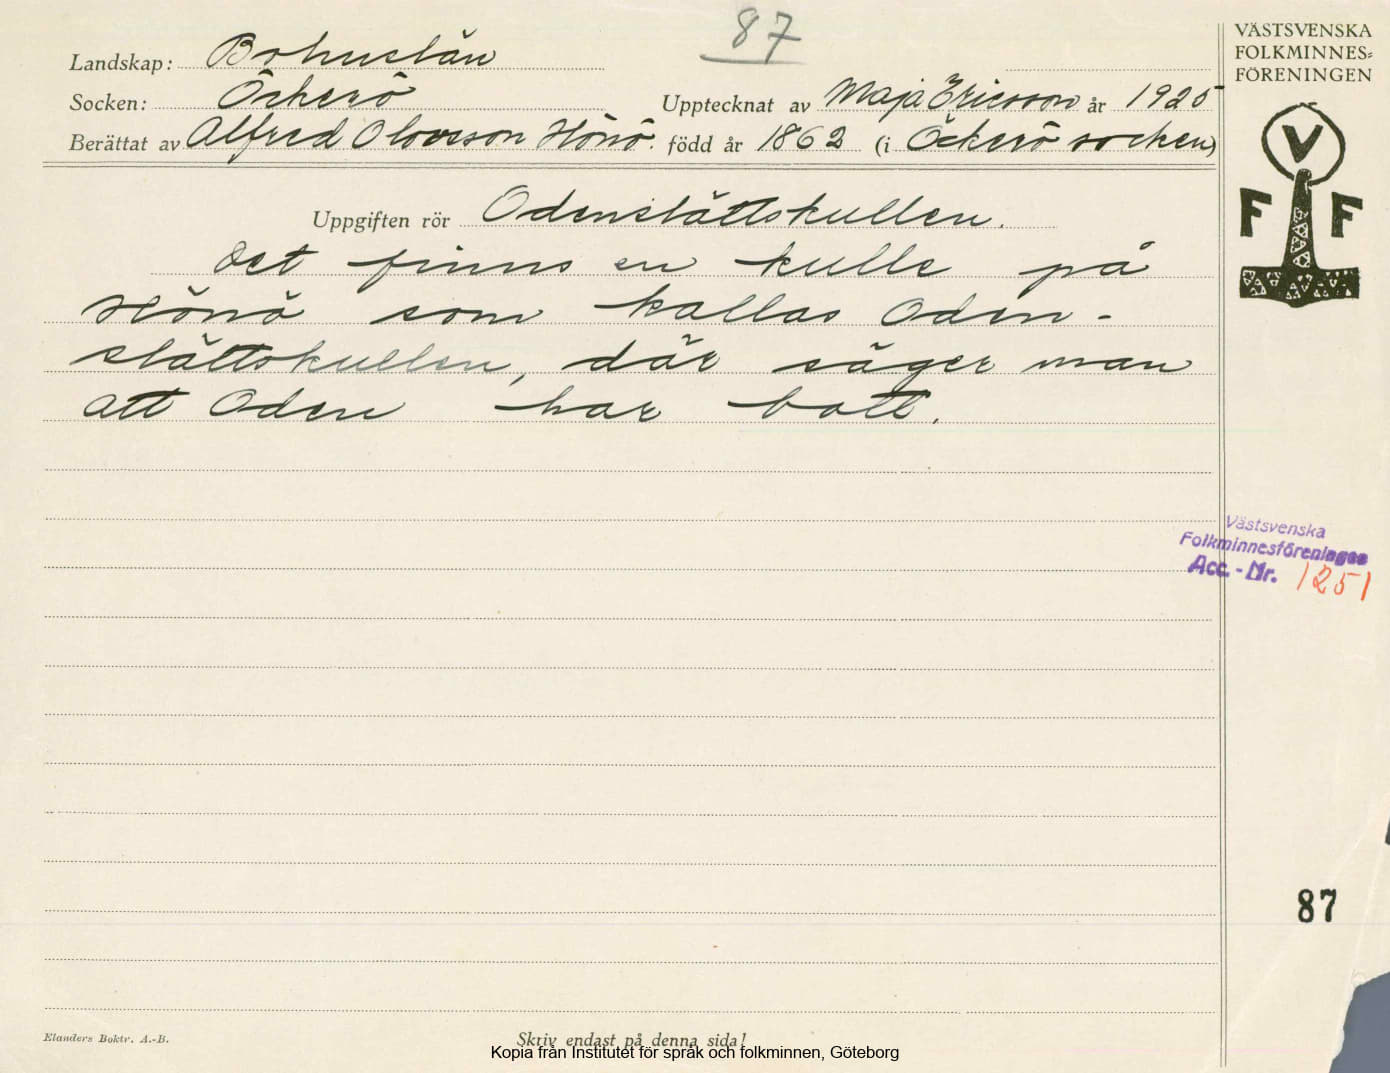 87
VÄSTSVENSKA
FOLKMINNES=
FÖRENINGEN
Landskap: Bohuslän
Socken: Öckerö
Upptecknat av Maja Ericsson år 1925
Berättat av Alfred Olovsson Hönö. född år 1862 (i Öckerö socken)
V
F F
Uppgiften rör Odenslättskullen.
Det finns en kulle på
Hönö som kallas Oden-
slättskullen, där säger man
att Oden har bott.
Västsvenska
Folkminnesföreningen
Acc. - Nr. 1251
87
Elanders Boktr. A.-B.
Skriv endast på denna sida!
Kopia från Institutet för språk och folkminnen, Göteborg